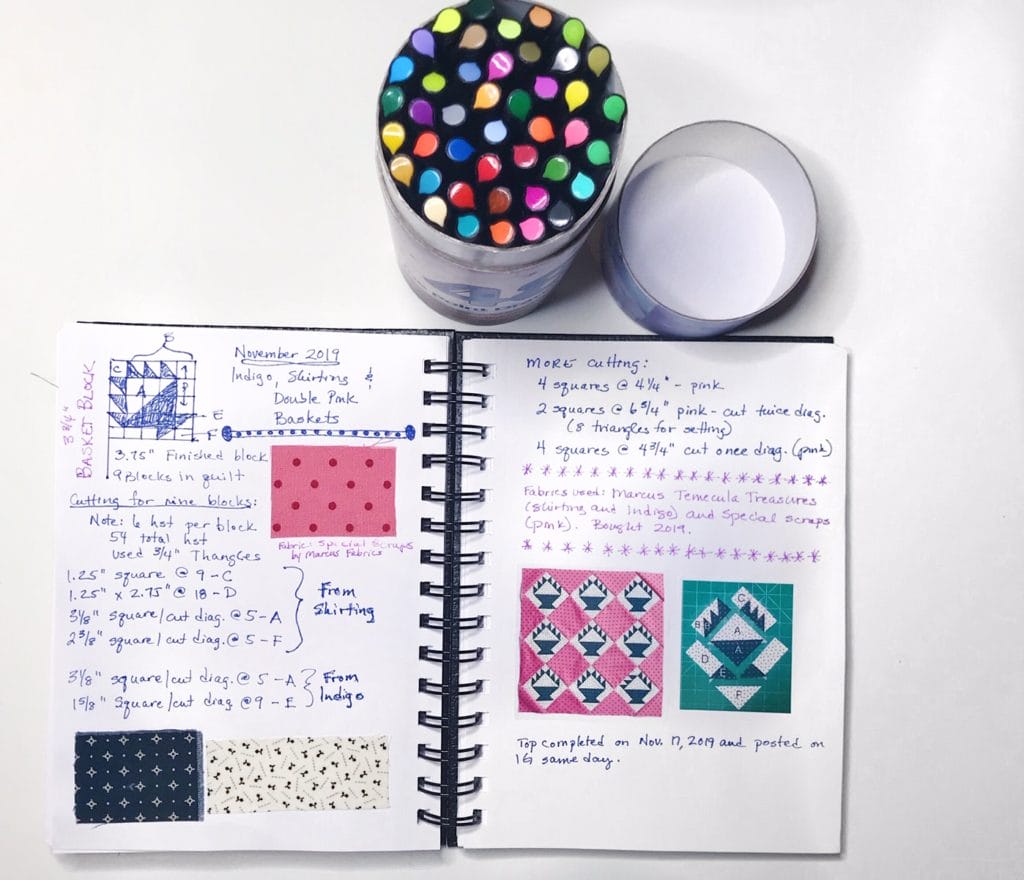 B
C
1
A
D
E
F
3 3/4"
BASKET BLOCK
November 2019
Indigo, Shirting &
Double Pink
Baskets
3.75" Finished block
9 Blocks in quilt
Cutting for nine blocks:
Note: 6 hst per block
54 total hst
used 3/4" Thangles
Fabric: Special Scraps
by Marcus Fabrics
1.25" square @ 9 - C
1.25" x 2.75" @ 18 - D
3 1/8" square/cut diag. @ 5 - A
2 3/8" square/cut diag. @ 5 - F
From
Shirting
3 1/8" square/cut diag. @ 5 - A
1 5/8" Square/cut diag @ 9 - E
From
Indigo
MORE Cutting:
4 squares @ 4 1/4" - pink
2 squares @ 6 3/4" pink - cut twice diag.
(8 triangles for setting)
4 squares @ 4 3/4" cut once diag. (pink)
Fabrics used: Marcus Temecula Treasures
(shirting and Indigo) and Special Scraps
(pink). Bought 2019.
C
B
A
A
D
E
F
Top completed on Nov. 17, 2019 and posted on
IG same day.